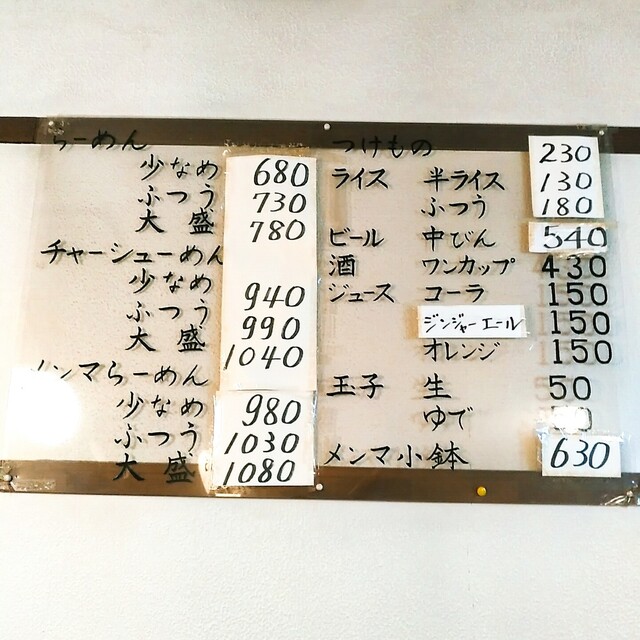 らーめん
少なめ 680
ふつう 730
大盛 780
チャーシューめん
少なめ 940
ふつう 990
大盛 1040
メンマらーめん
少なめ 980
ふつう 1030
大盛 1080
つけもの 230
ライス 半ライス 130
ふつう 180
ビール 中びん 540
酒 ワンカップ 430
ジュース コーラ 150
ジンジャーエール 150
オレンジ 150
玉子 生 50
ゆで
メンマ小鉢 630